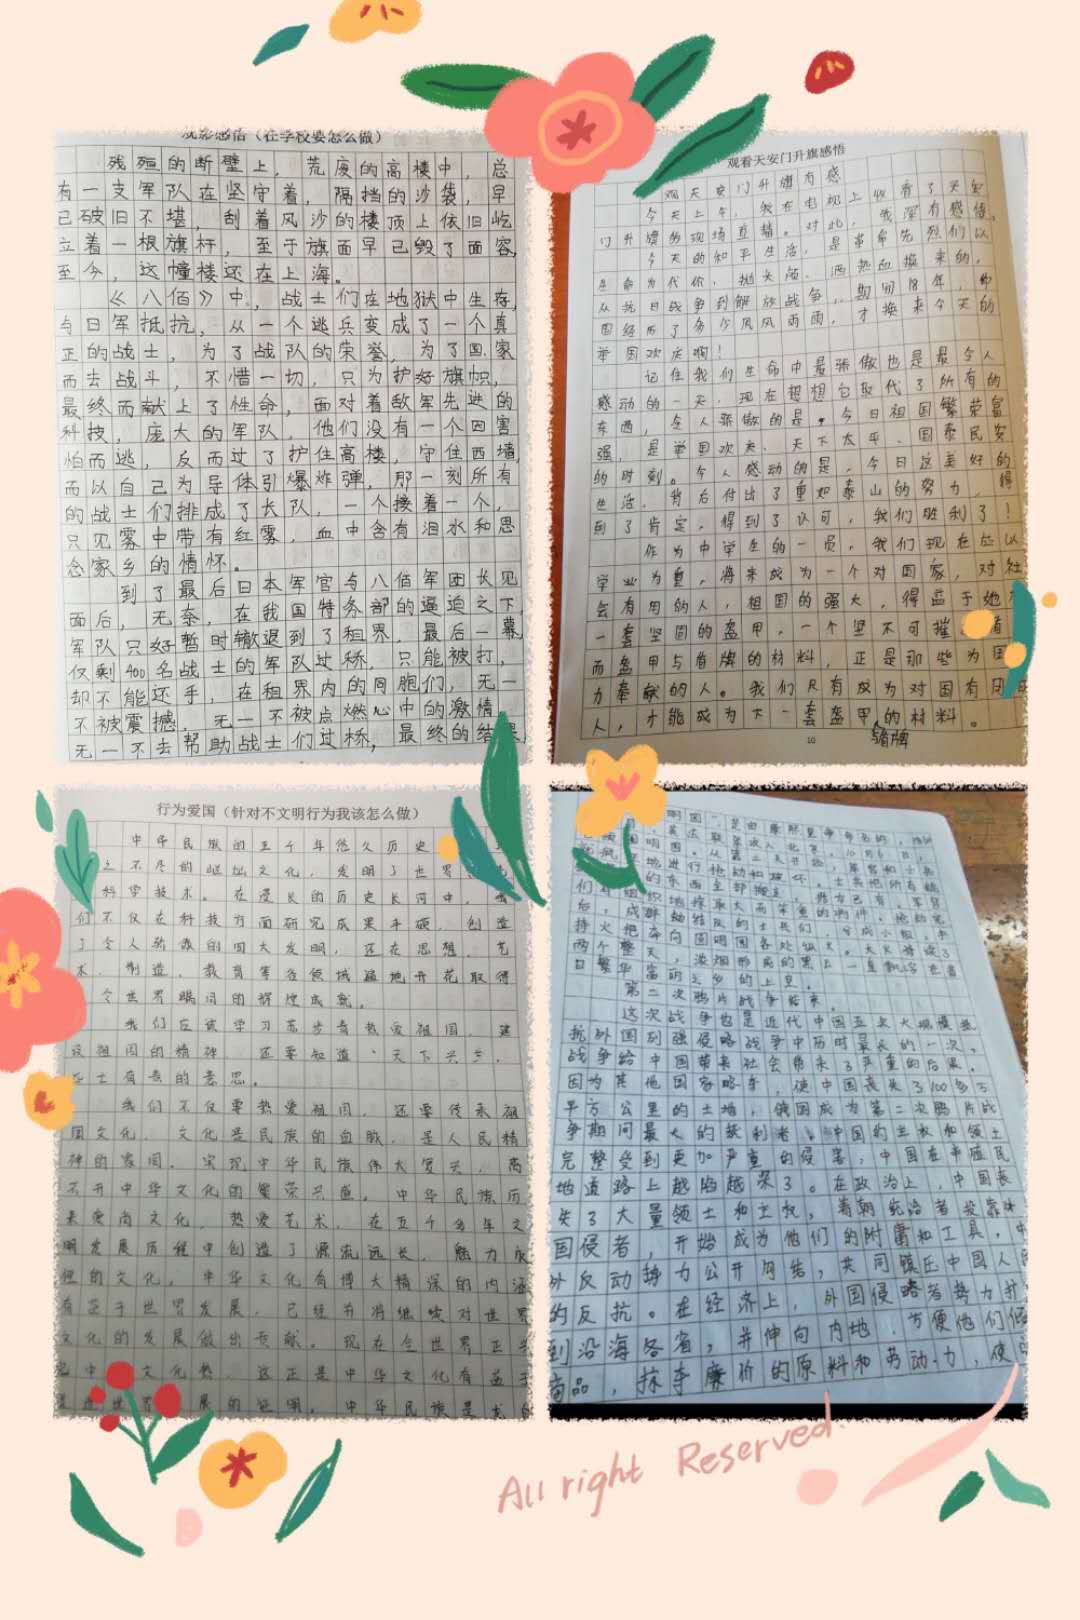 观影感悟（在学校要怎么做）
残殖的断壁上，荒废的高楼中，总
有一支军队在坚守着，隔挡的沙袋，早
已破旧不堪，刮着风沙的楼顶上依旧屹
立着一根旗杆，至于旗面早已毁了面容，
至今，这幢楼还在上海。
《八佰》中，战士们在地狱中生存，
与日军抵抗，从一个逃兵变成了一个真
正的战士，为了战队的荣誉，为了国家
而去战斗，不惜一切，只为护好旗帜，
最终而献上了性命，面对着敌军先进的
科技，庞大的军队，他们没有一个因害
怕而逃，反而过了护住高楼，守住西墙，
而以自己为导体引爆炸弹，那一刻所有
的战士们排成了长队，一个接着一个，
只见雾中带有红雾，血中含有泪水和思
念家乡的情怀。
到了最后日本军官与八佰军团长见
面后，无奈，在我国特务部的逼迫之下，
军队只好暂时辙退到了租界，最后一幕，
仅剩400名战士的军队过桥，只能被打，
却不能还手，在租界内的同胞们，无一
不被震撼，无一不被点燃心中的激情，
无一不去帮助战士们过桥，最终的结果
观看天安门升旗感悟
观天安门升旗有感
今天上午，我在电视上收看了天安
门升旗的现场直播。对此，我深有感悟，
今天的和平生活，是革命先烈们以
生命为代价，抛头颅、洒热血换来的，
从抗日战争到解放战争，期间18年，中
国经历了多少风风雨雨，才换来今天的
举国欢庆啊！
记住我们生命中最骄傲也是最令人
感动的一天，现在想想它取代了所有的
东西，令人骄傲的是，今日祖国繁荣富
强，是举国欢庆、天下太平、国泰民安
的时刻。令人感动的是，今日这美好的
生活，背后付出了重如泰山的努力，得
到了肯定，得到了认可，我们胜利了！
作为中学生的一员，我们现在应以
学业为重，将来成为一个对国家，对社
会有用的人，祖国的强大，得益于她
一套坚固的盔甲，一个坚不可摧
而盔甲与盾牌的材料，正是那些为国
力奉献的人。我们只有成为对国有用
人，才能成为下一套盔甲的材料。
盾牌
10
行为爱国（针对不文明行为我该怎么做）
中华民族的五千年悠久历史
之不尽的灿烂文化，发明了世界
科学技术。在漫长的历史长河中，
们不仅在科技方面研究成果丰硕，创造
了令人骄傲的四大发明，还在思想、艺
术、制造、教育等各领域遍地开花取得
令世界瞩目的辉煌成就。
我们应该学习苏步青热爱祖国，建
设祖国的精神，还要知道，天下兴亡，
匹士有责的意思。
我们不仅要热爱祖国，还要传承祖
国文化，文化是民族的血脉，是人民精
神的家园。实现中华民族伟大复兴，离
不开中华文化的繁荣兴盛。中华民族历
来崇尚文化，热爱艺术，在五千多年文
明发展历程中创造了源流远长，魅力永
恒的文化，中华文化有博大精深的内涵
有益于世界发展，已经并将继续对世界
文化的发展做出贡献。现在全世界正兴
起中华文化热，这正是中华文化有益于
展的证明。中华民族是龙的
第二次鸦片战争结束。
这次战争也是近代中国五次大规模抵
抗外国列强侵略战争中历时最长的一次。
战争给中国带来社会带来了严重的后果。
因为其他国家略夺，使中国丧失了100多万
平方公里的土地，俄国成为第二次鸦片战
争期间最大的获利者。中国的主权和领土
完整受到更加严重的侵害，中国在半殖民
地道路上越陷越深了。在政治上，中国丧
失了大量领土和主权，清朝统治者投靠外
国侵者，开始成为他们的附庸和工具，中
外反动势力公开勾结，共同镇压中国人民
的反抗。在经济上，外国侵略者势力扩
到沿海各省，并伸向内地，方便他们倾
商品，抹夺廉价的原料和劳动力，使
All right Reserved.